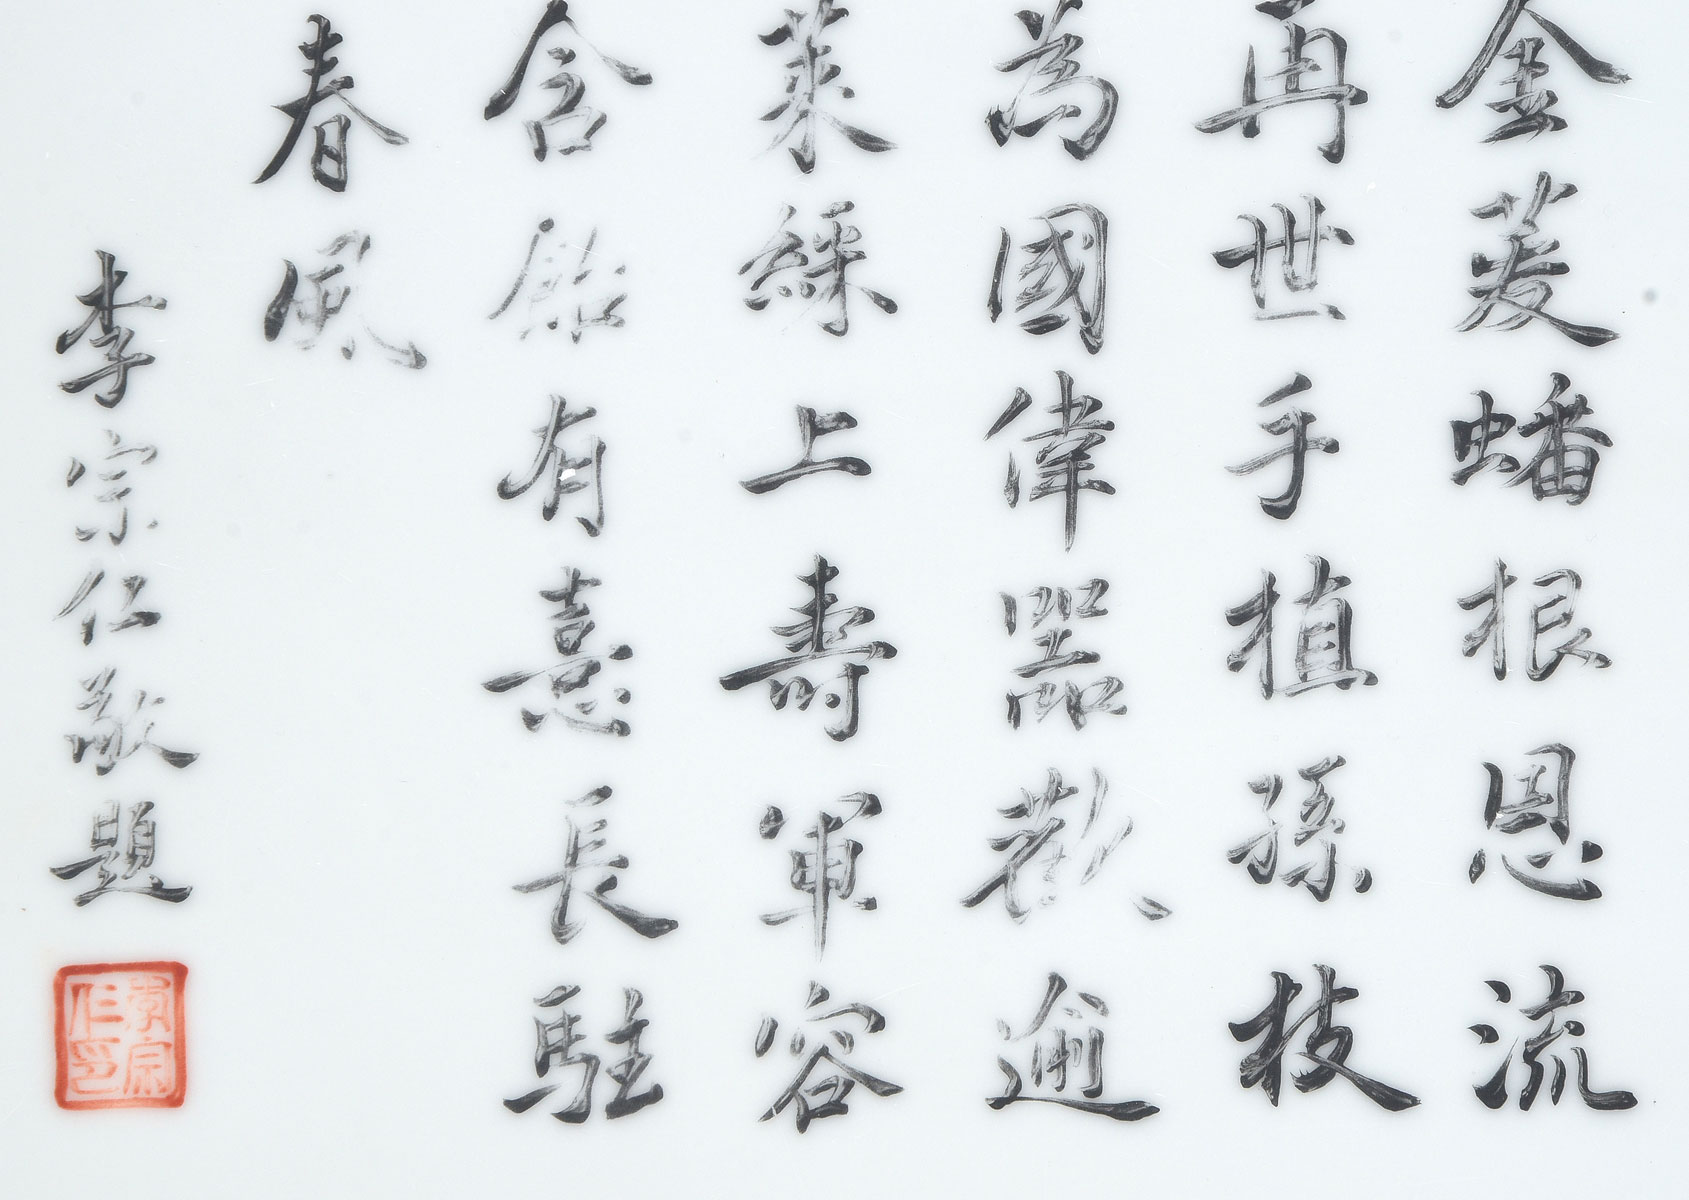 金菱蟠根恩流
再世手植孫枝
為國偉器歡逾
萊綵上壽軍容
含飴有憙長駐
春風
李宗仁敬題
李宗仁印